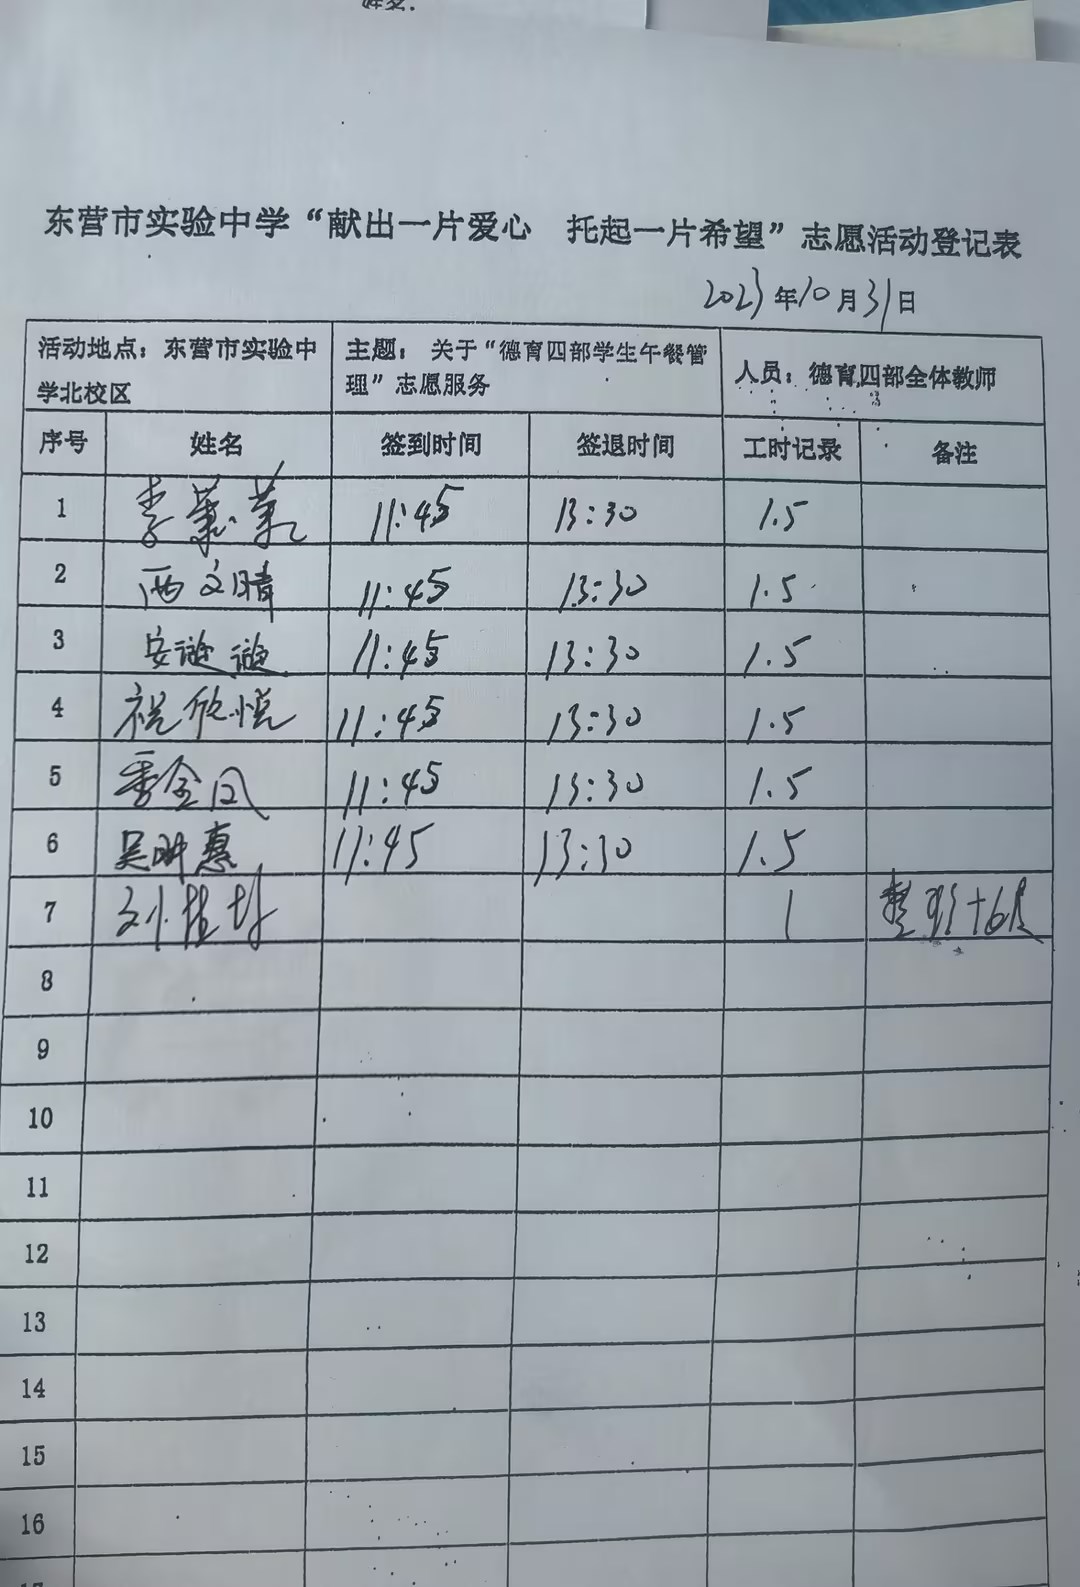 姓名:
东营市实验中学“献出一片爱心 托起一片希望”志愿活动登记表
2023年10月31日
活动地点：东营市实验中学北校区 主题：关于“德育四部学生午餐管理”志愿服务 人员：德育四部全体教师
序号 姓名 签到时间 签退时间 工时记录 备注
1 李 11:45 13:30 1.5
2 西文晴 11:45 13:30 1.5
3 安谜谜 11:45 13:30 1.5
4 祝欣悦 11:45 13:30 1.5
5 季金凤 11:45 13:30 1.5
6 吴 惠 11:45 13:30 1.5
7 刘桂 1
8
9
10
11
12
13
14
15
16
17